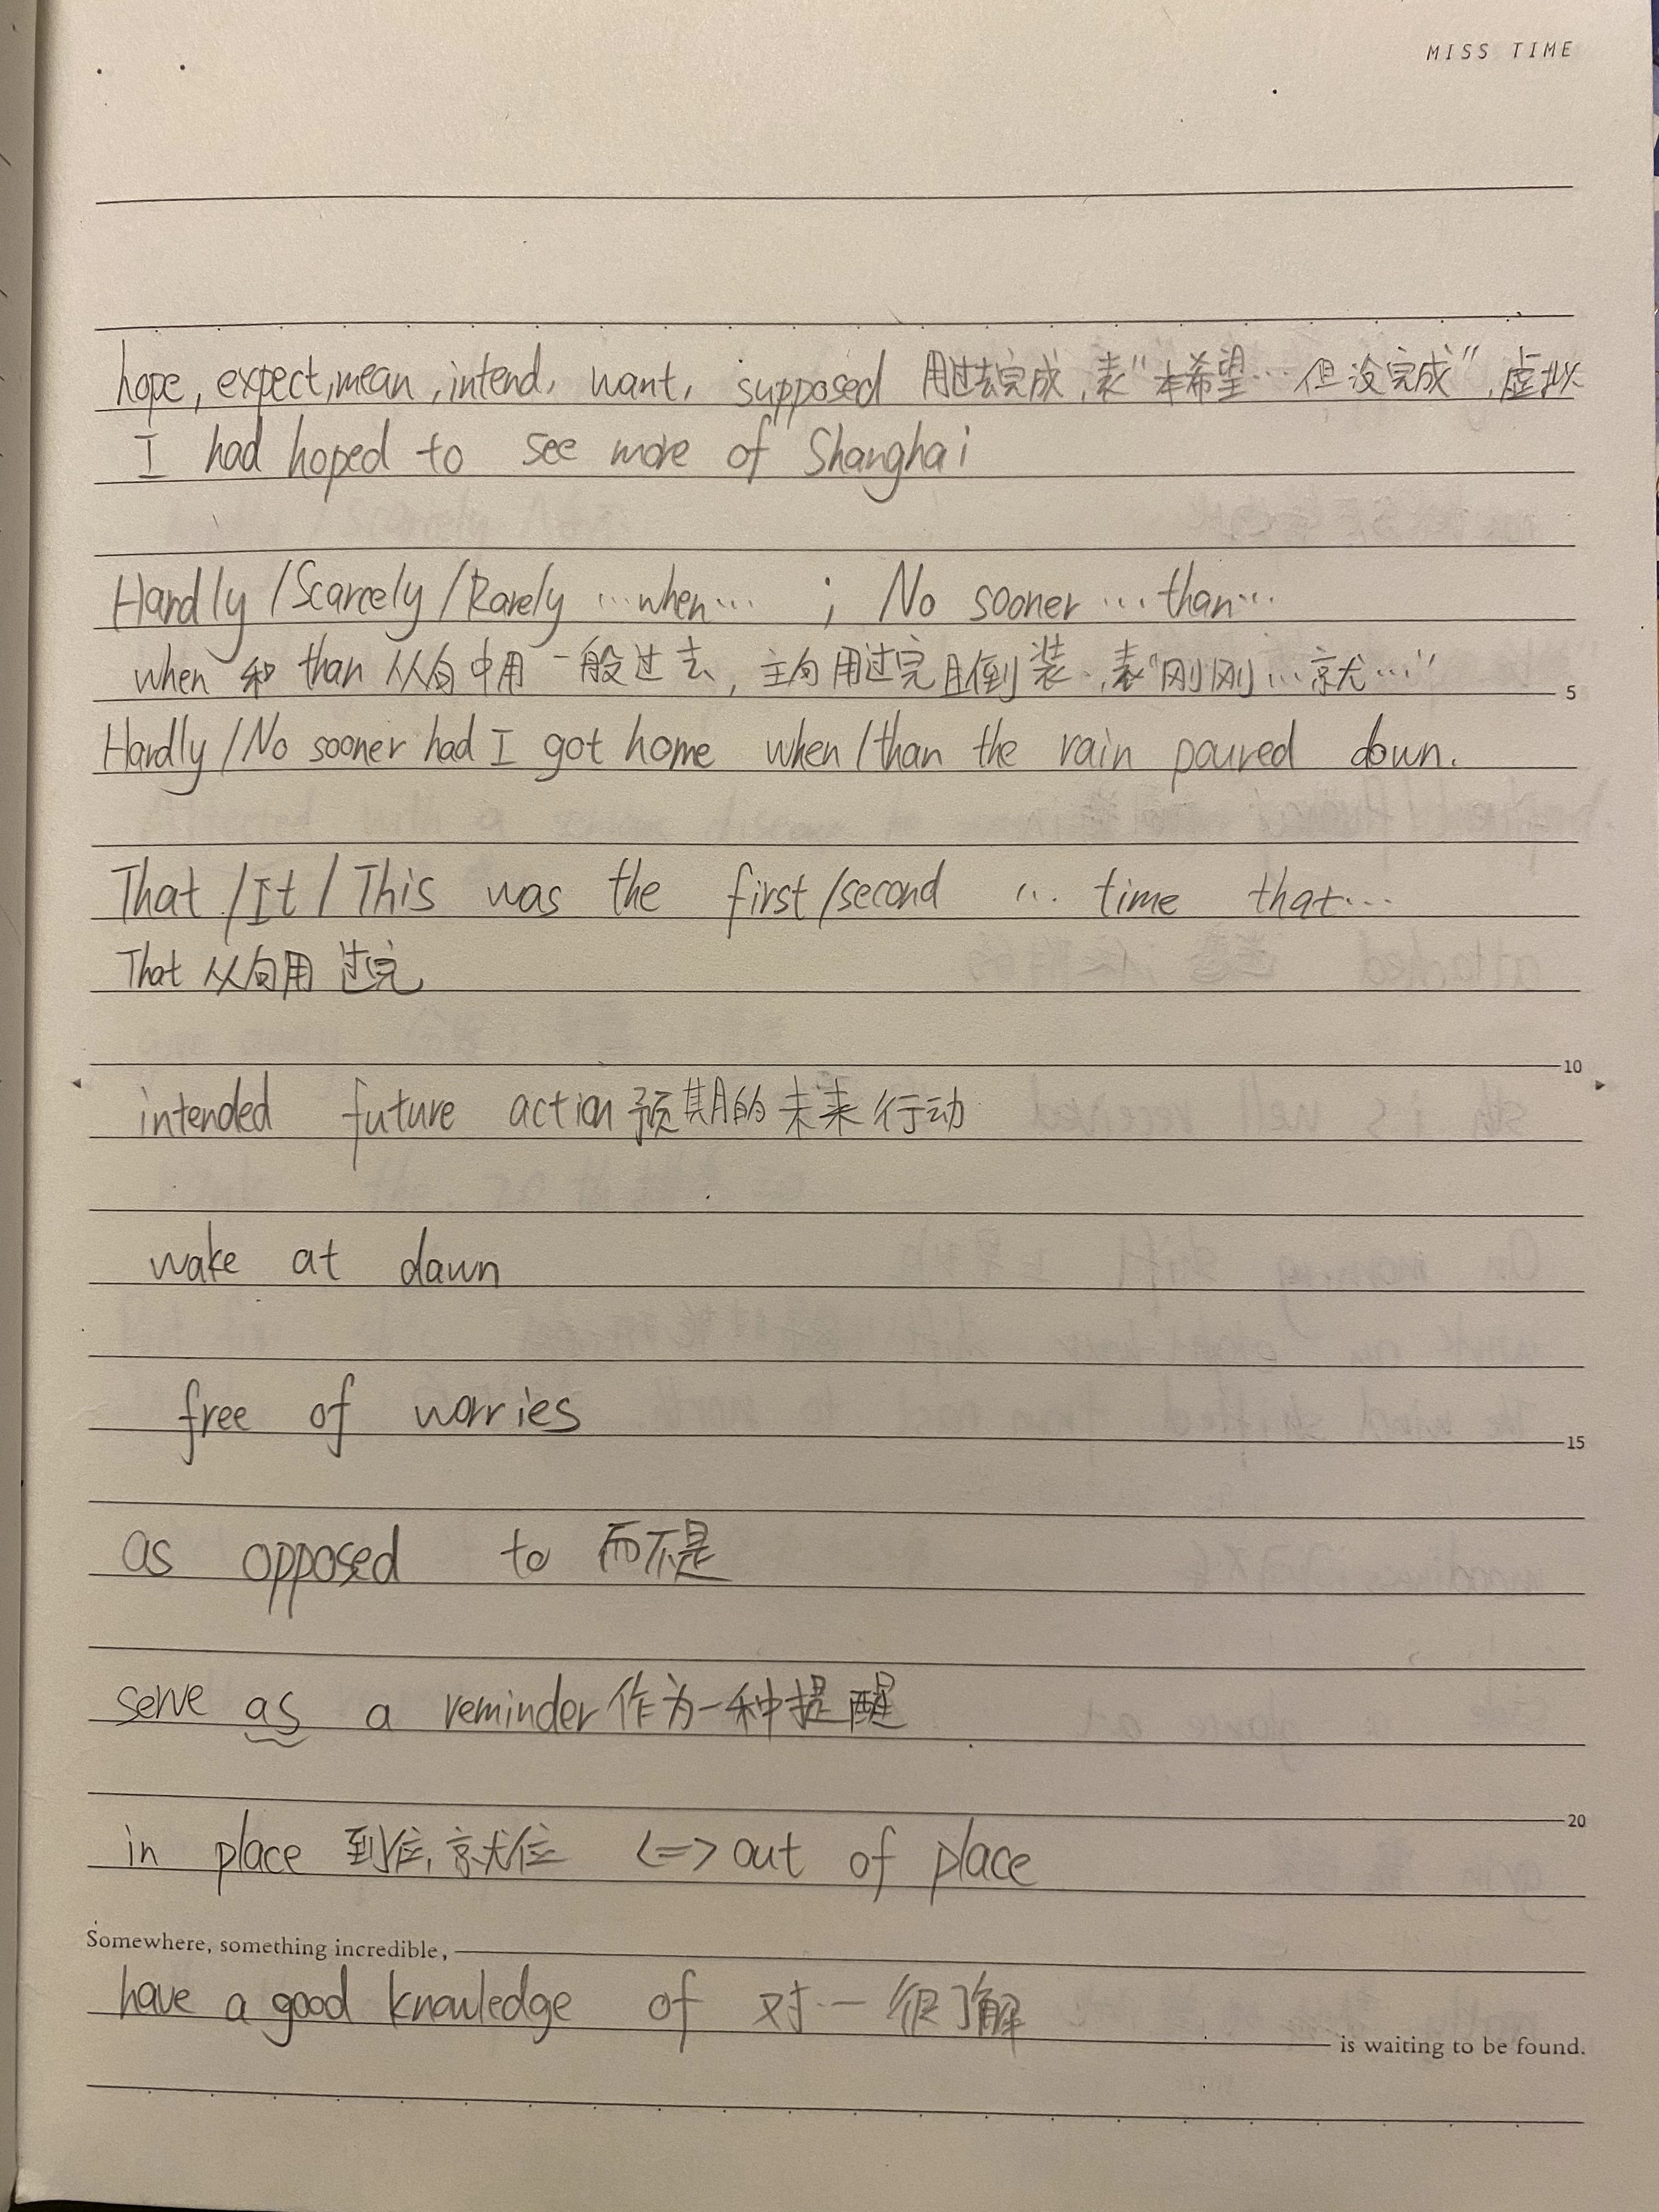 MISS TIME
hope, expect, mean, intend, want, supposed 用过去完成, 表"本希望…但没完成", 虚拟
I had hoped to see more of Shanghai
Hardly / Scarcely / Rarely … when … ; No sooner … than …
when 和 than 从句中用一般过去, 主句用过完月倒装, 表"刚刚…就…"
5
Hardly / No sooner had I got home when / than the rain poured down.
That / It / This was the first / second … time that …
That 从句用过完
10
intended future action 预期的未来行动
wake at dawn
free of worries
15
as opposed to 而不是
serve as a reminder 作为一种提醒
in place 到位, 就位 <=> out of place
20
Somewhere, something incredible, is waiting to be found.
have a good knowledge of 对…很了解